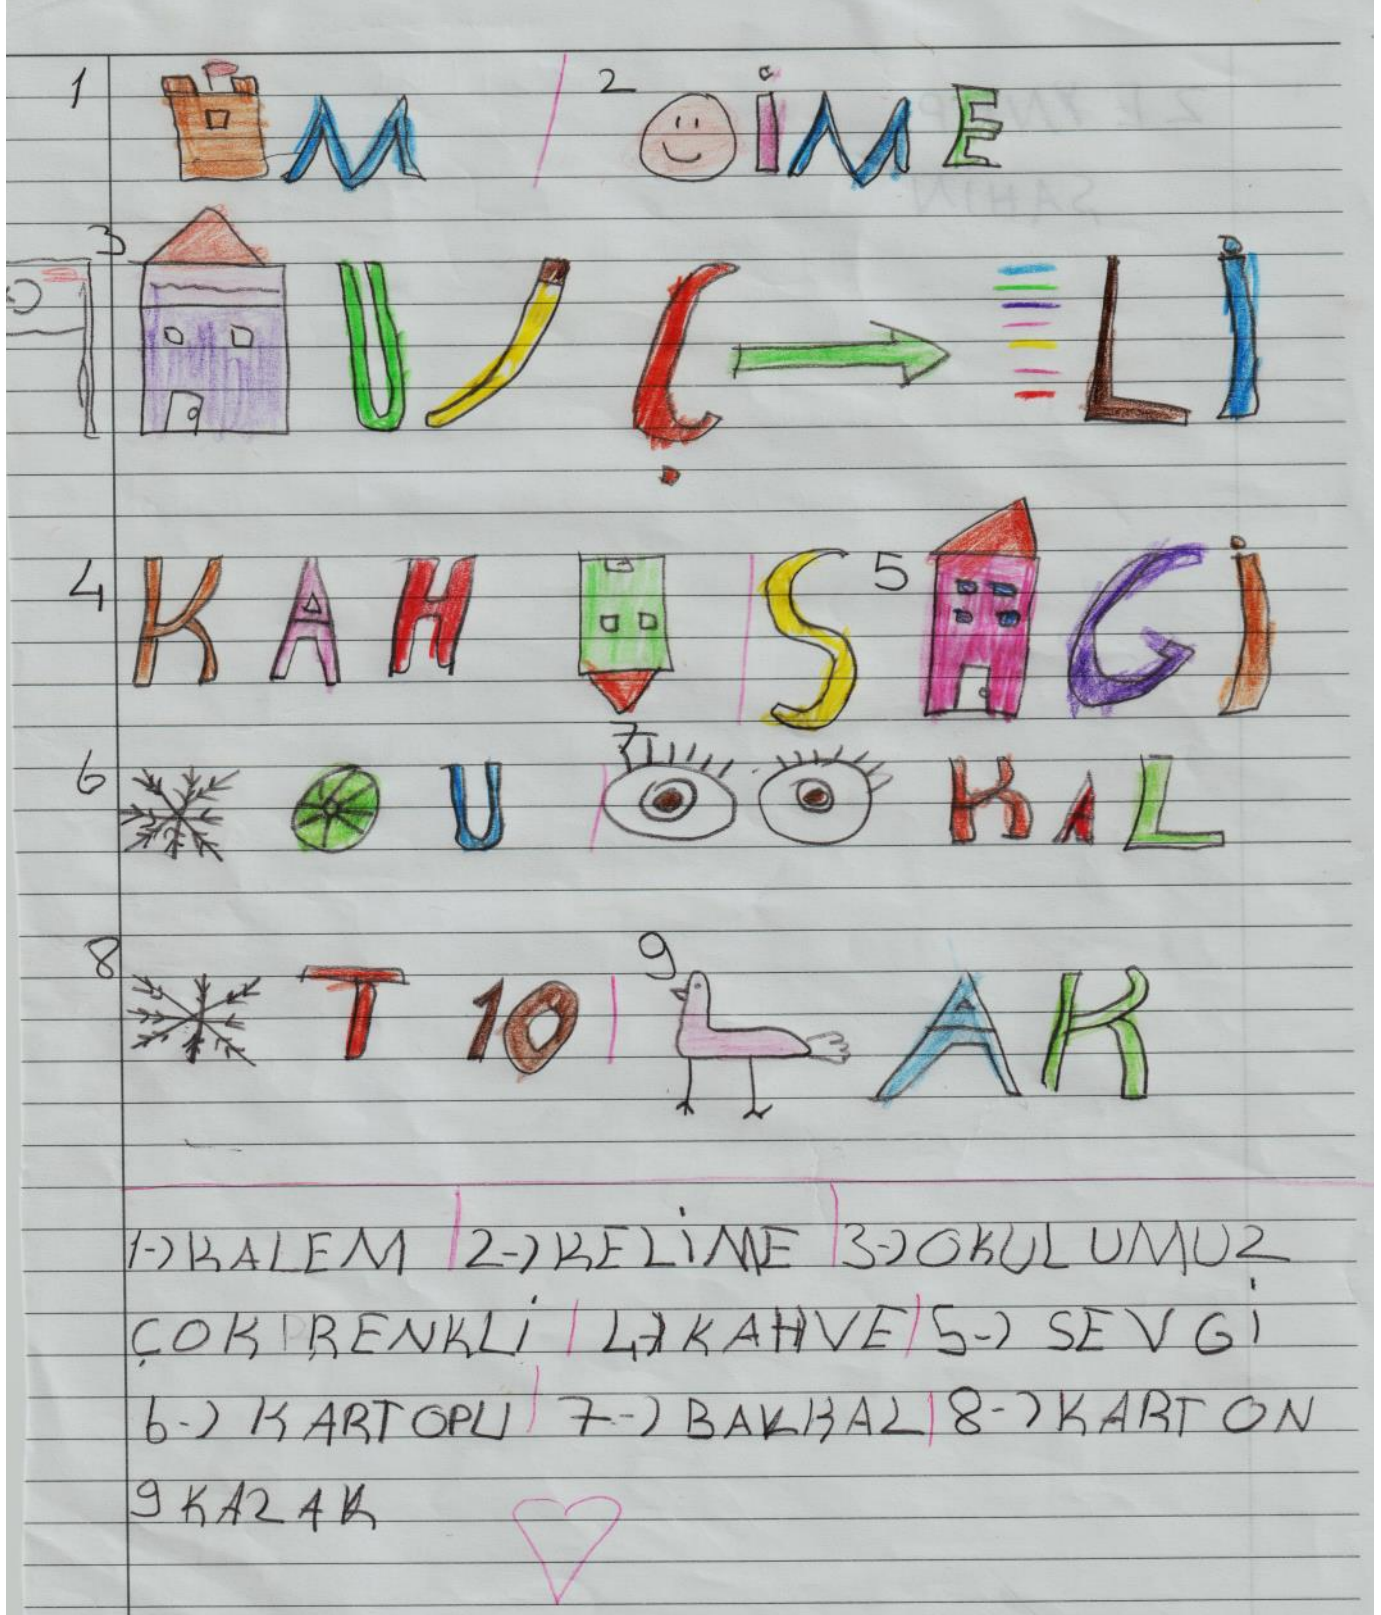 1 M 2 İME
3 U Ç LI
4 KAH S 5 Gİ
6 U 7 KAL
8 T 10 9 AK
1-) KALEM 2-) KELİME 3-) OKULUMUZ
ÇOK RENKLİ 4-) KAHVE 5-) SEVGİ
6-) KARTOPU 7-) BAKKAL 8-) KARTON
9 KAZAK